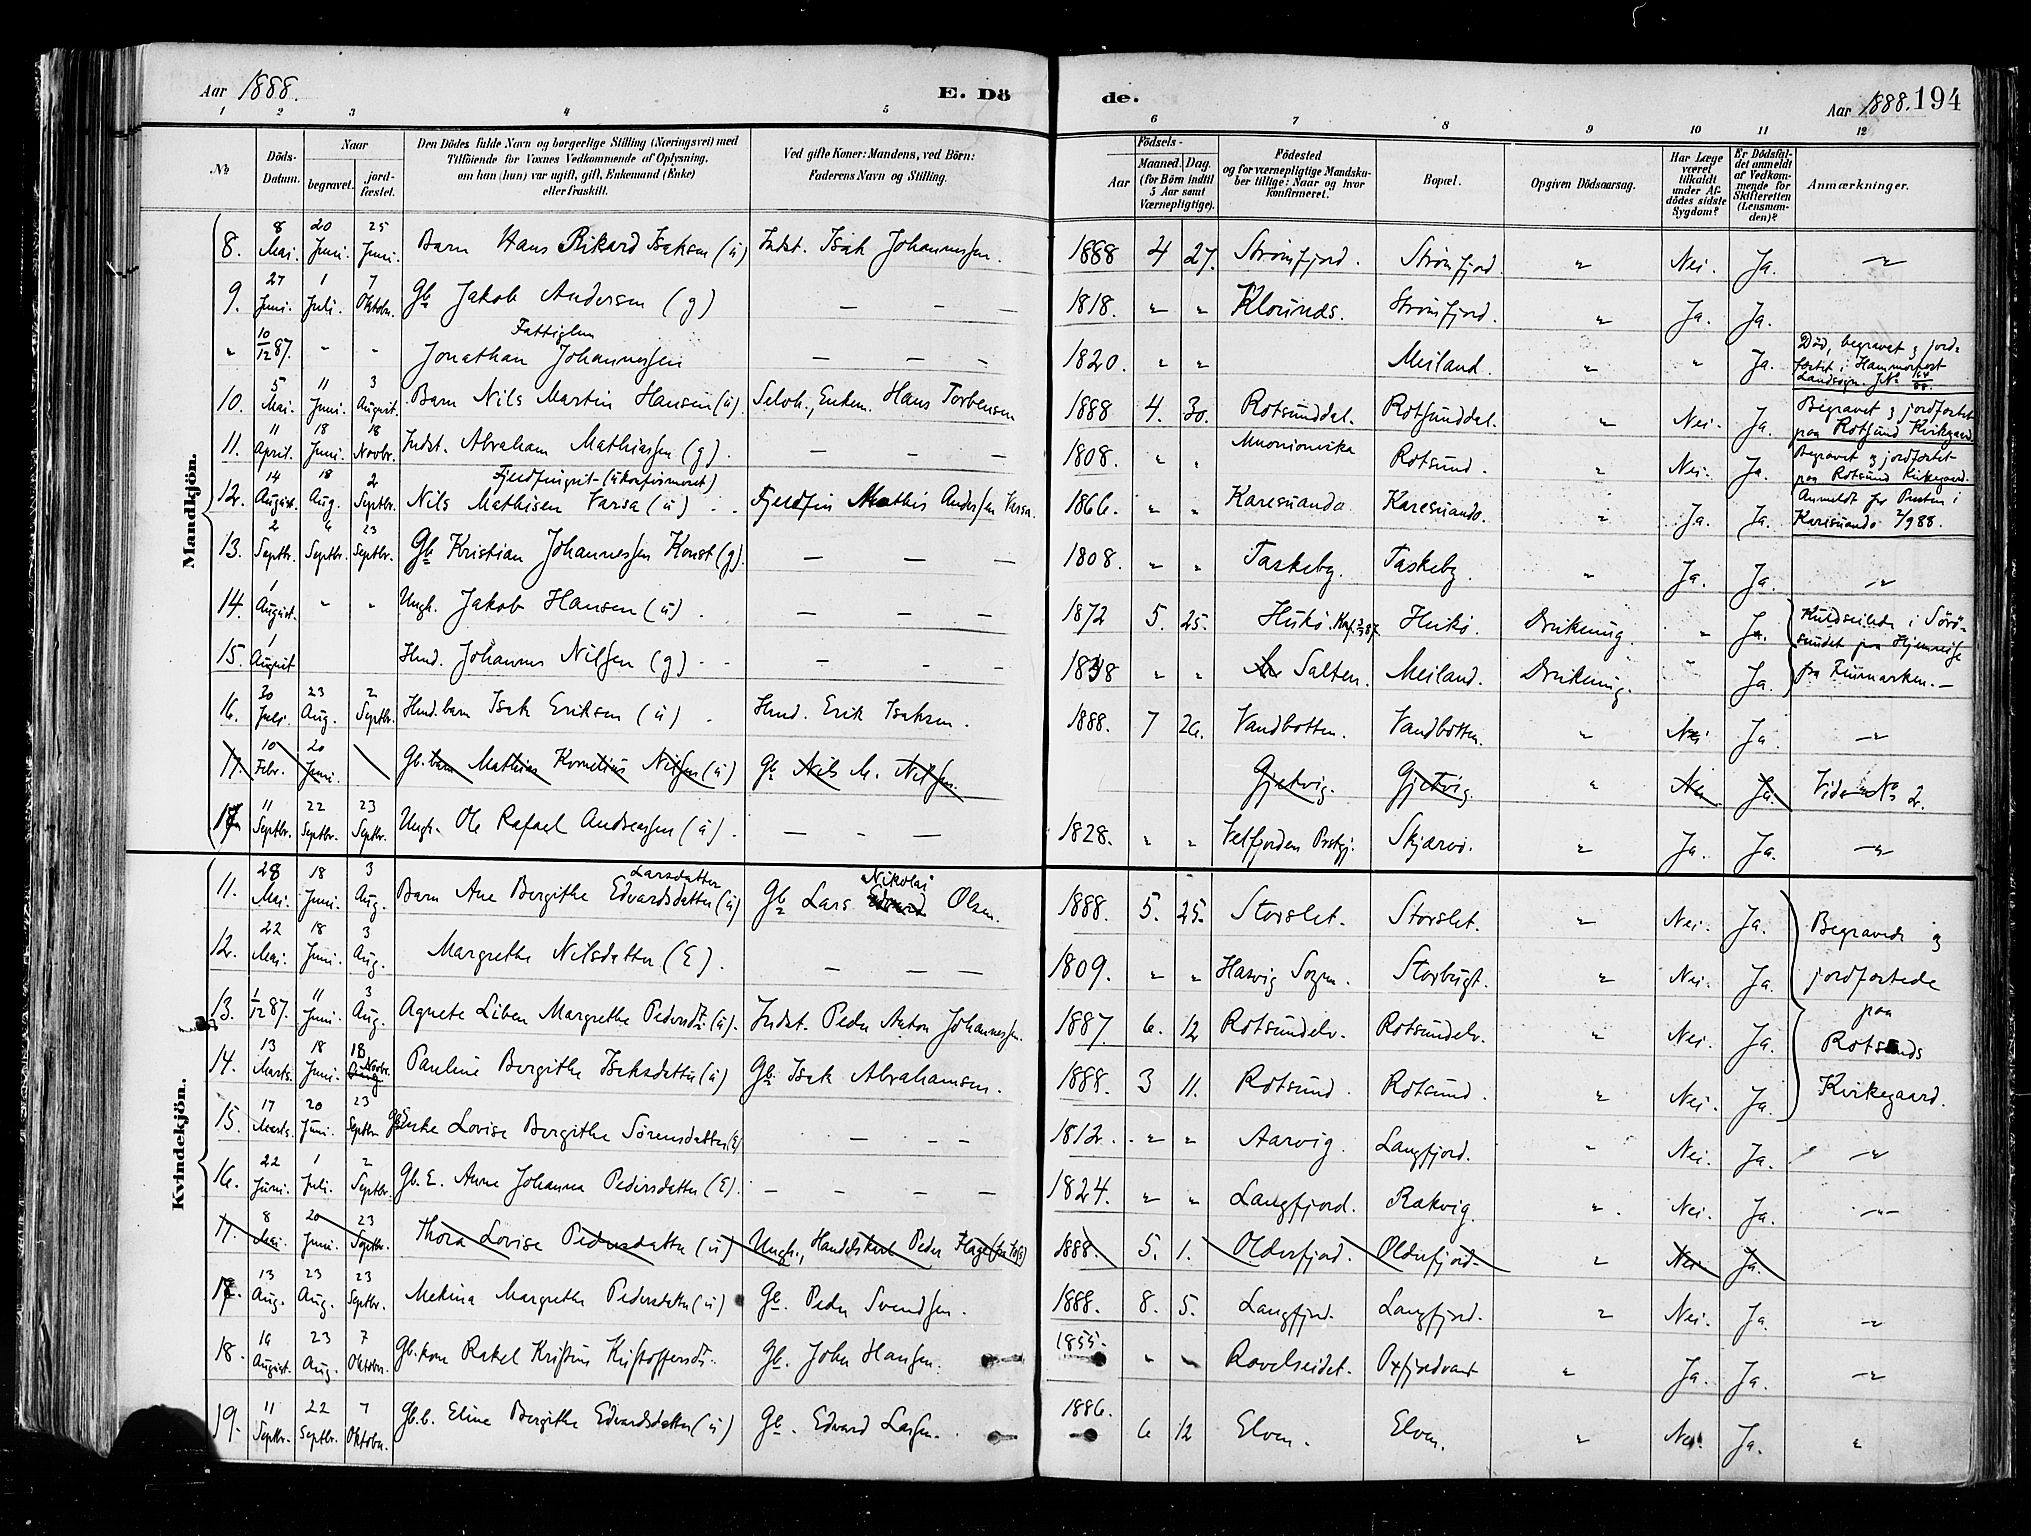 Aar 1888.
E. Dö
de.
Aar 1888. 194
1 2 3 4 5 6 7 8 9 10 11 12
No
Döds-Datum.
Naar
begravet.
jord-fæstet.
Den Dödes fulde Navn og borgerlige Stilling (Næringsvei) med
Tilföiende for Voxnes Vedkommende af Oplysning,
om han (hun) var ugift, gift, Enkemand (Enke)
eller fraskilt.
Ved gifte Koner: Mandens, ved Börn:
Faderens Navn og Stilling.
Födsels-
Aar
Maaned. Dag.
(for Börn indtil
5 Aar samt
Værnepligtige).
Födested
og for værnepligtige Mandska-
ber tillige: Naar og hvor
konfirmeret.
Bopæl.
Opgiven Dödsaarsag.
Har Læge
været
tilkaldt
under Af-
dödes sidste
Sygdom?
Er Dödsfal-
det anmeldt
af Vedkom-
mende for
Skifteretten
(Lensman-
den)?
Anmærkninger.
Mandkjön.
8. 8 Mai. 20 Juni. 25 Juni. Barn Hans Rikard Isaksen (u) Indst. Isak Johannessen. 1888 4 27. Strömfjord. Strömfjord. " Nei. Ja. "
9. 27 Juni. 1 Juli. 7 Oktobr. Gb Jakob Andersen (g) — — — 1818. " " Klounds. Strömfjord. " Ja. Ja.
" 10/12 87. " " Fattiglem
Jonathan Johannessen — — — 1820. " " Meiland. " " Ja. Död, begravet og jord-
fæstet i Hammerfest
Landsogn
10. 5 Mai. 11 Juni. 3 August. Barn Nils Martin Hansen (u). Selveh., Enkem. Hans Torbensen 1888 4. 30. Rotsunddal. Rotsunddal. " Nei. Ja. Begravet og jordfæstet
paa Rotsund Kirkegaard
11. 11 April. 18 Juni. 18 Novbr. Indst. Abraham Mathiassen (g). — — — 1808. " " Muonionniska Rotsund. " Nei. Ja. Begravet og jordfæstet
paa Rotsund Kirkegaard.
12. 14 August. 18 Aug. 2 Septbr. Fjeldfingut (ukonfirmeret)
Nils Mathisen Varsa (u) Fjeldfin Mathis Andersen Varsa. 1866. " " Karesuando Karesuando. " Ja. Ja. Anmeldt for Presten i
Karesuando 2/9 88.
13. 2 Septbr. 4 Septbr. 23 Septbr. Gb Kristian Johannessen Konst (g). — — — 1808. " " Taskeby. Taskeby. " Ja. Ja. "
14. 1 August. " " Ungk. Jakob Hansen (u). — — — 1872 5. 25. Hukö. Hukö. Drukning. " Ja. Kuldseilede i Sörö-
sundet paa Hjemreise
fra Finmarken.—
15. 1 August Husd. Johannes Nilsen (g) — — — 1838 " " Salten. Meiland. Drukning. " Ja.
16. 30 Juli. 23 Aug. 2 Septbr. Husd. barn Isak Eriksen (u) Husd. Erik Isaksen. 1888. 7 26. Vandbotten. Vandbotten. " Nei Ja "
17. 10 Febr. 20 Juni. Gb. barn Mathias Kornelius Nilsen (u) Gb Nils M. Nilsen. Gjetvig. Gjetvig. " Nei Ja. Vide No 2.
17. 11 Septbr. 22 Septbr. 23 Septbr. Ungk. Ole Rafael Andreassen (u). — — — 1828. " " Velfjorden Prstgj. Skjærvö. " Ja. Ja. "
Kvindekjön.
11. 28 Mai. 18 Juni. 3 Aug. Barn Ane Bergithe Edvardsdatter Larsdatter (u) Gb Lars Edvard Nikolai Olsen. 1888. 5. 25. Storslet. Storslet. " Nei. Ja. Begravede og
jordfæstede
paa
Rotsunds
Kirkegaard.
12. 22 Mai. 18 Juni. 3 Aug. Margrethe Nilsdatter (E). — — — 1809. " " Hasvig Sogn. Storbugt. " Nei. Ja.
13. 1/12 87. 11 Juni. 3 Aug. Agnete Liben Margrethe Pedersdt. (u). Indst. Peder Anton Johannessen. 1887 6. 12 Rotsundelv. Rotsundelv. " Nei. Ja.
14. 13 Marts. 18 Juni. 18 Novbr. Aug Pauline Bergithe Isaksdatter (u) Gb. Isak Abrahamsen. 1888. 3 11. Rotsund. Rotsund. " Nei. Ja.
15. 17 Marts. 20 Juni. 23 Septbr. Gb Enke Lovise Bergithe Sörensdatter (E) — — — 1812. " " Aarvig. Langfjord. " Nei. Ja. "
16. 22 Juni. 1 Juli. 2 Septbr. Gb. E. Anne Johanna Pedersdatter (E). — — — — 1824. " " Langfjord. Rakvig. " Nei. Ja. "
17. 8 Mai. 20 Juni. 23 Septbr. Thora Lovise Pedersdatter (u) Ungk., Handelskarl Peder 1888. 5. 1. Olderfjord. Olderfjord. " Nei. Ja.
17. 13 Aug. 23 Aug. 23 Septbr. Mekina Margrethe Pedersdatter (u) Gb. Peder Svendsen. 1888. 8. 5. Langfjord. Langfjord. " Nei. Ja. "
18. 16 August. 23 Aug. 7 Oktobr. Gb. kone Rakel Kristine Kristoffersdt. Gb. John Hansen. 1855. " " Ravelseidet. Oxfjordvant " Ja. Ja. "
19. 11 Septbr. 22 Septbr. 7 Oktobr. Gb. b. Eline Bergithe Edvardsdatter (u) Gb. Edvard Larsen. 1886. 6 12 Elven. Elven. " Nei. Ja. "